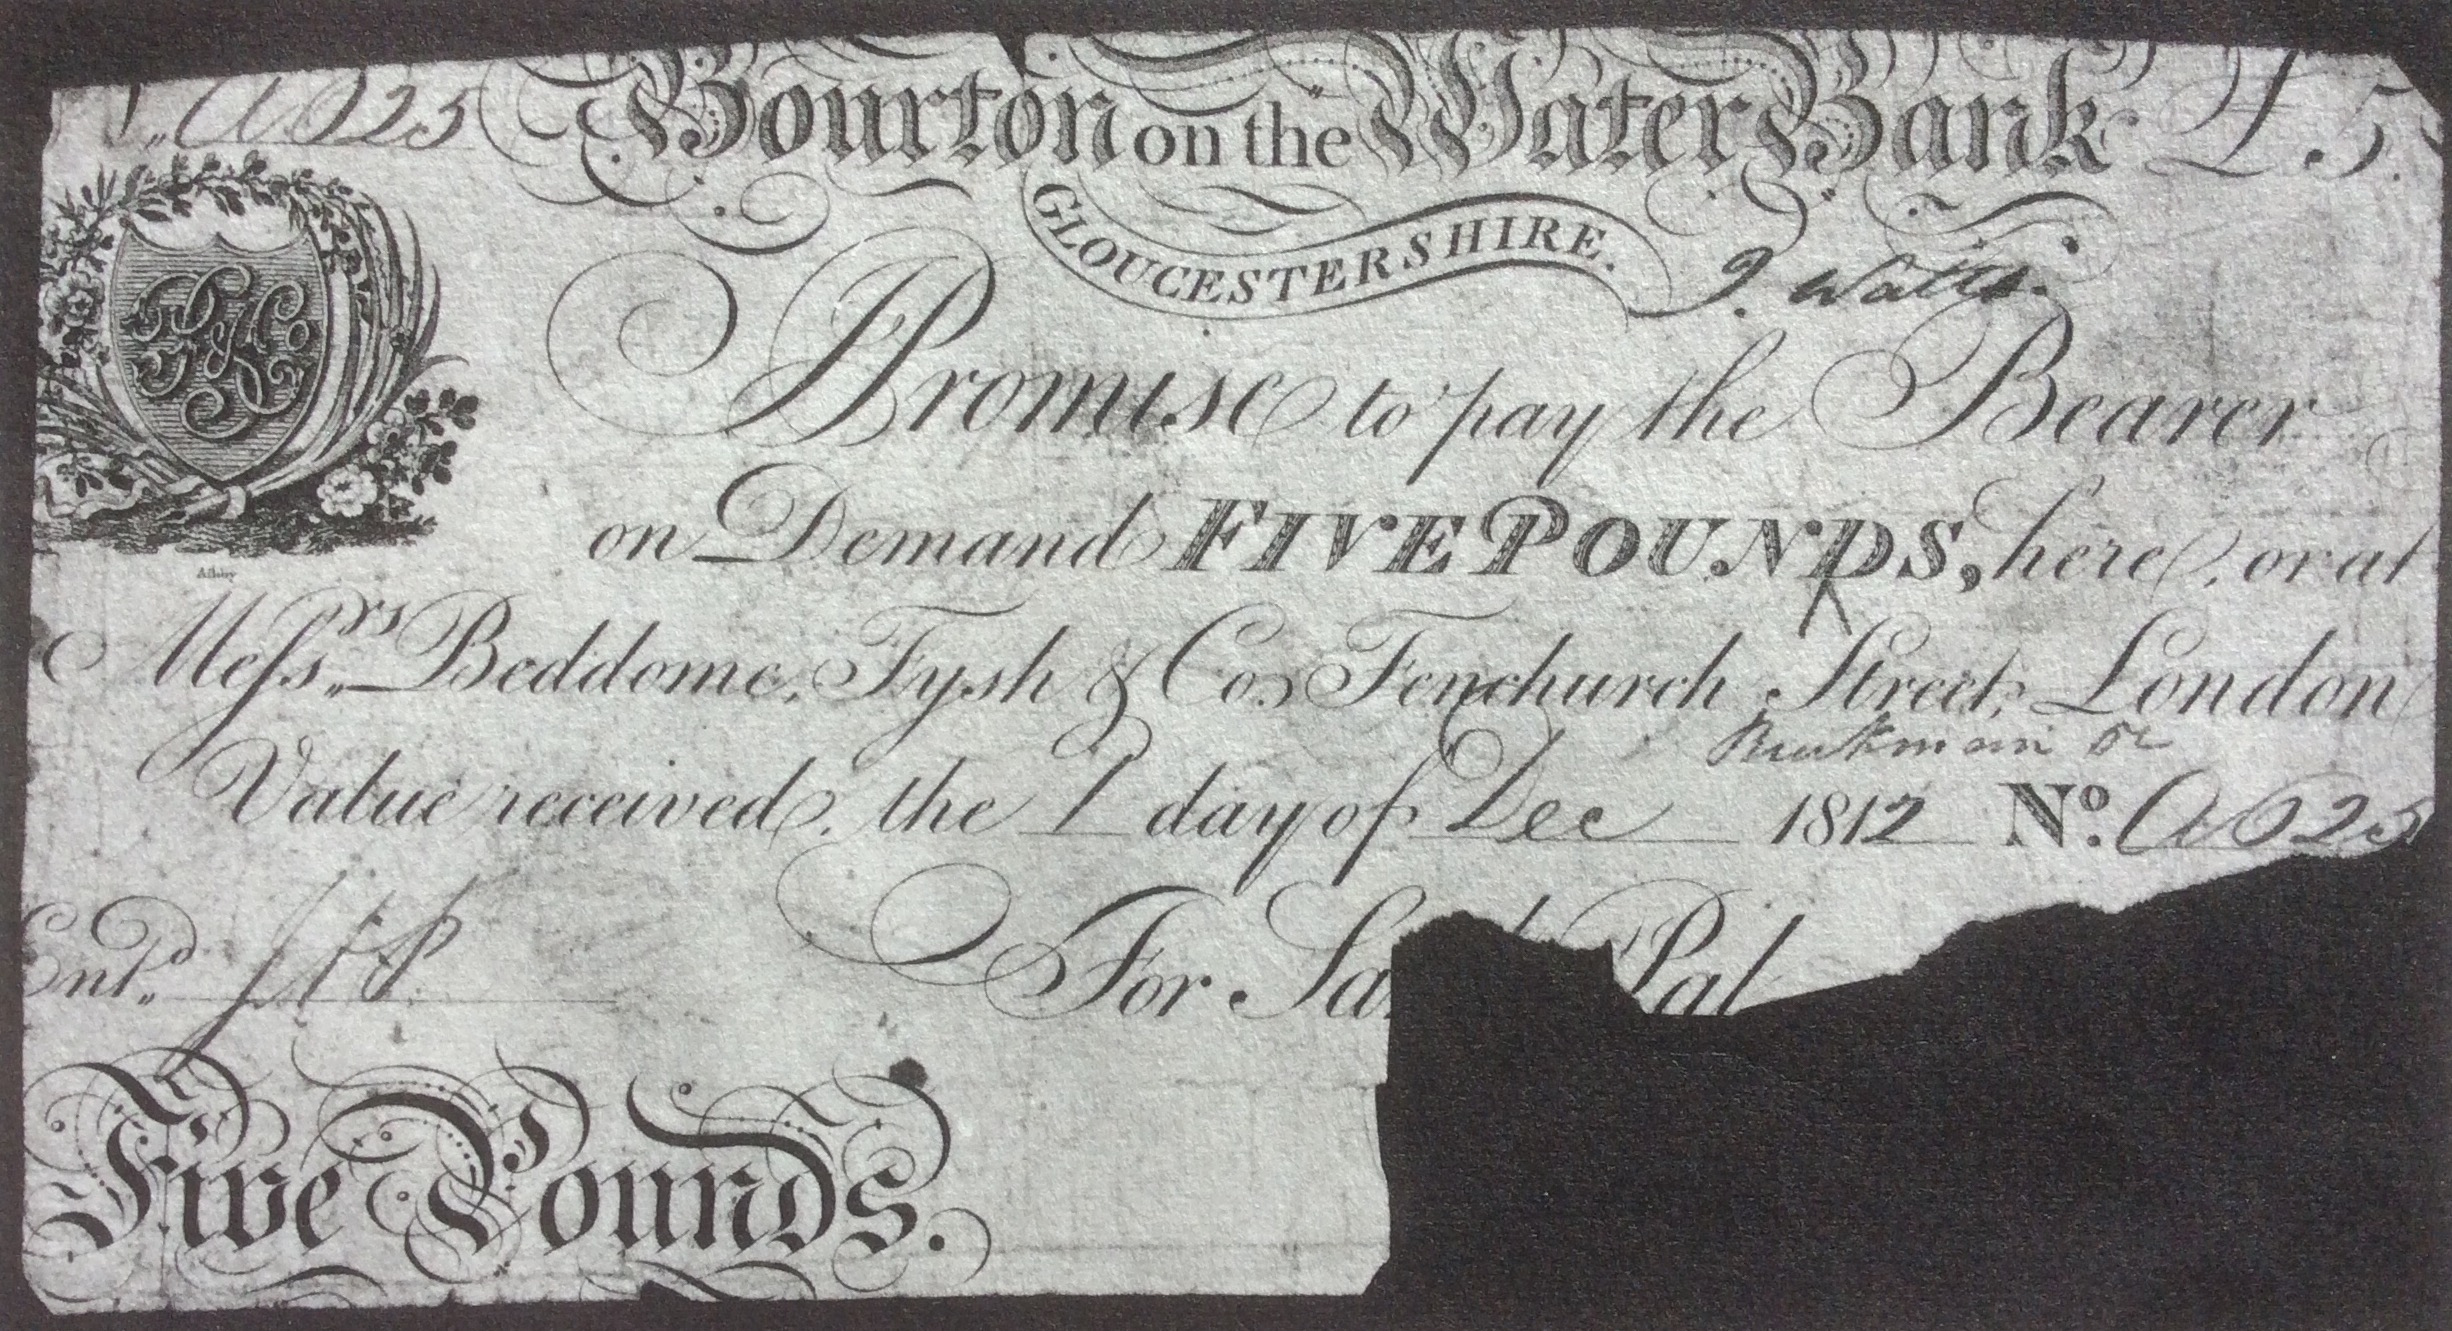 A 625 Bourton on the Water Bank £5.
GLOUCESTERSHIRE.
J. Watts.
I Promise to pay the Bearer
on Demand FIVE POUNDS, here, or at
Ashby
Messrs. Beddome, Fysh & Co. Fenchurch Street, London
Value received, the 1 day of Dec 1812 No. A 625
Entd. For Sa Pal
Five Pounds.